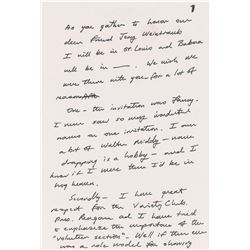 1
As you gather to honor our
dear friend Jerry Weintraub
I will be in St. Louis and Barbara
will be in —. We wish we
were there with you for a lot of
reasons
One - the invitation was fancy.
I never saw so many wonderful
names on one invitation. I am
a bit of Walter Middy - name
dropping is a hobby - and I
know if I were there I'd be in
hog heaven.
Secondly - I have great
respect for the Variety Club.
Pres. Reagan and I have tried
to emphasize the importance of the
"volunteer sector". Well if there ever
was a role model for showing